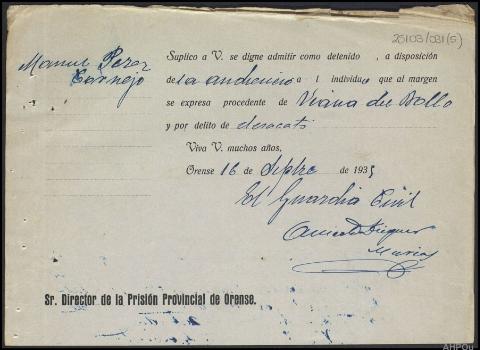 25103/031(5)
Manuel Perez
Cornejo
Suplico a V. se digne admitir como detenido , a disposición
de la audiencia a l individuo que al margen
se expresa procedente de Viana del Bollo
y por delito de desacato
Viva V. muchos años,
Orense 16 de Sptbre de 1935
El Guardia Civil
Sr. Director de la Prisión Provincial de Orense.
AHPOu